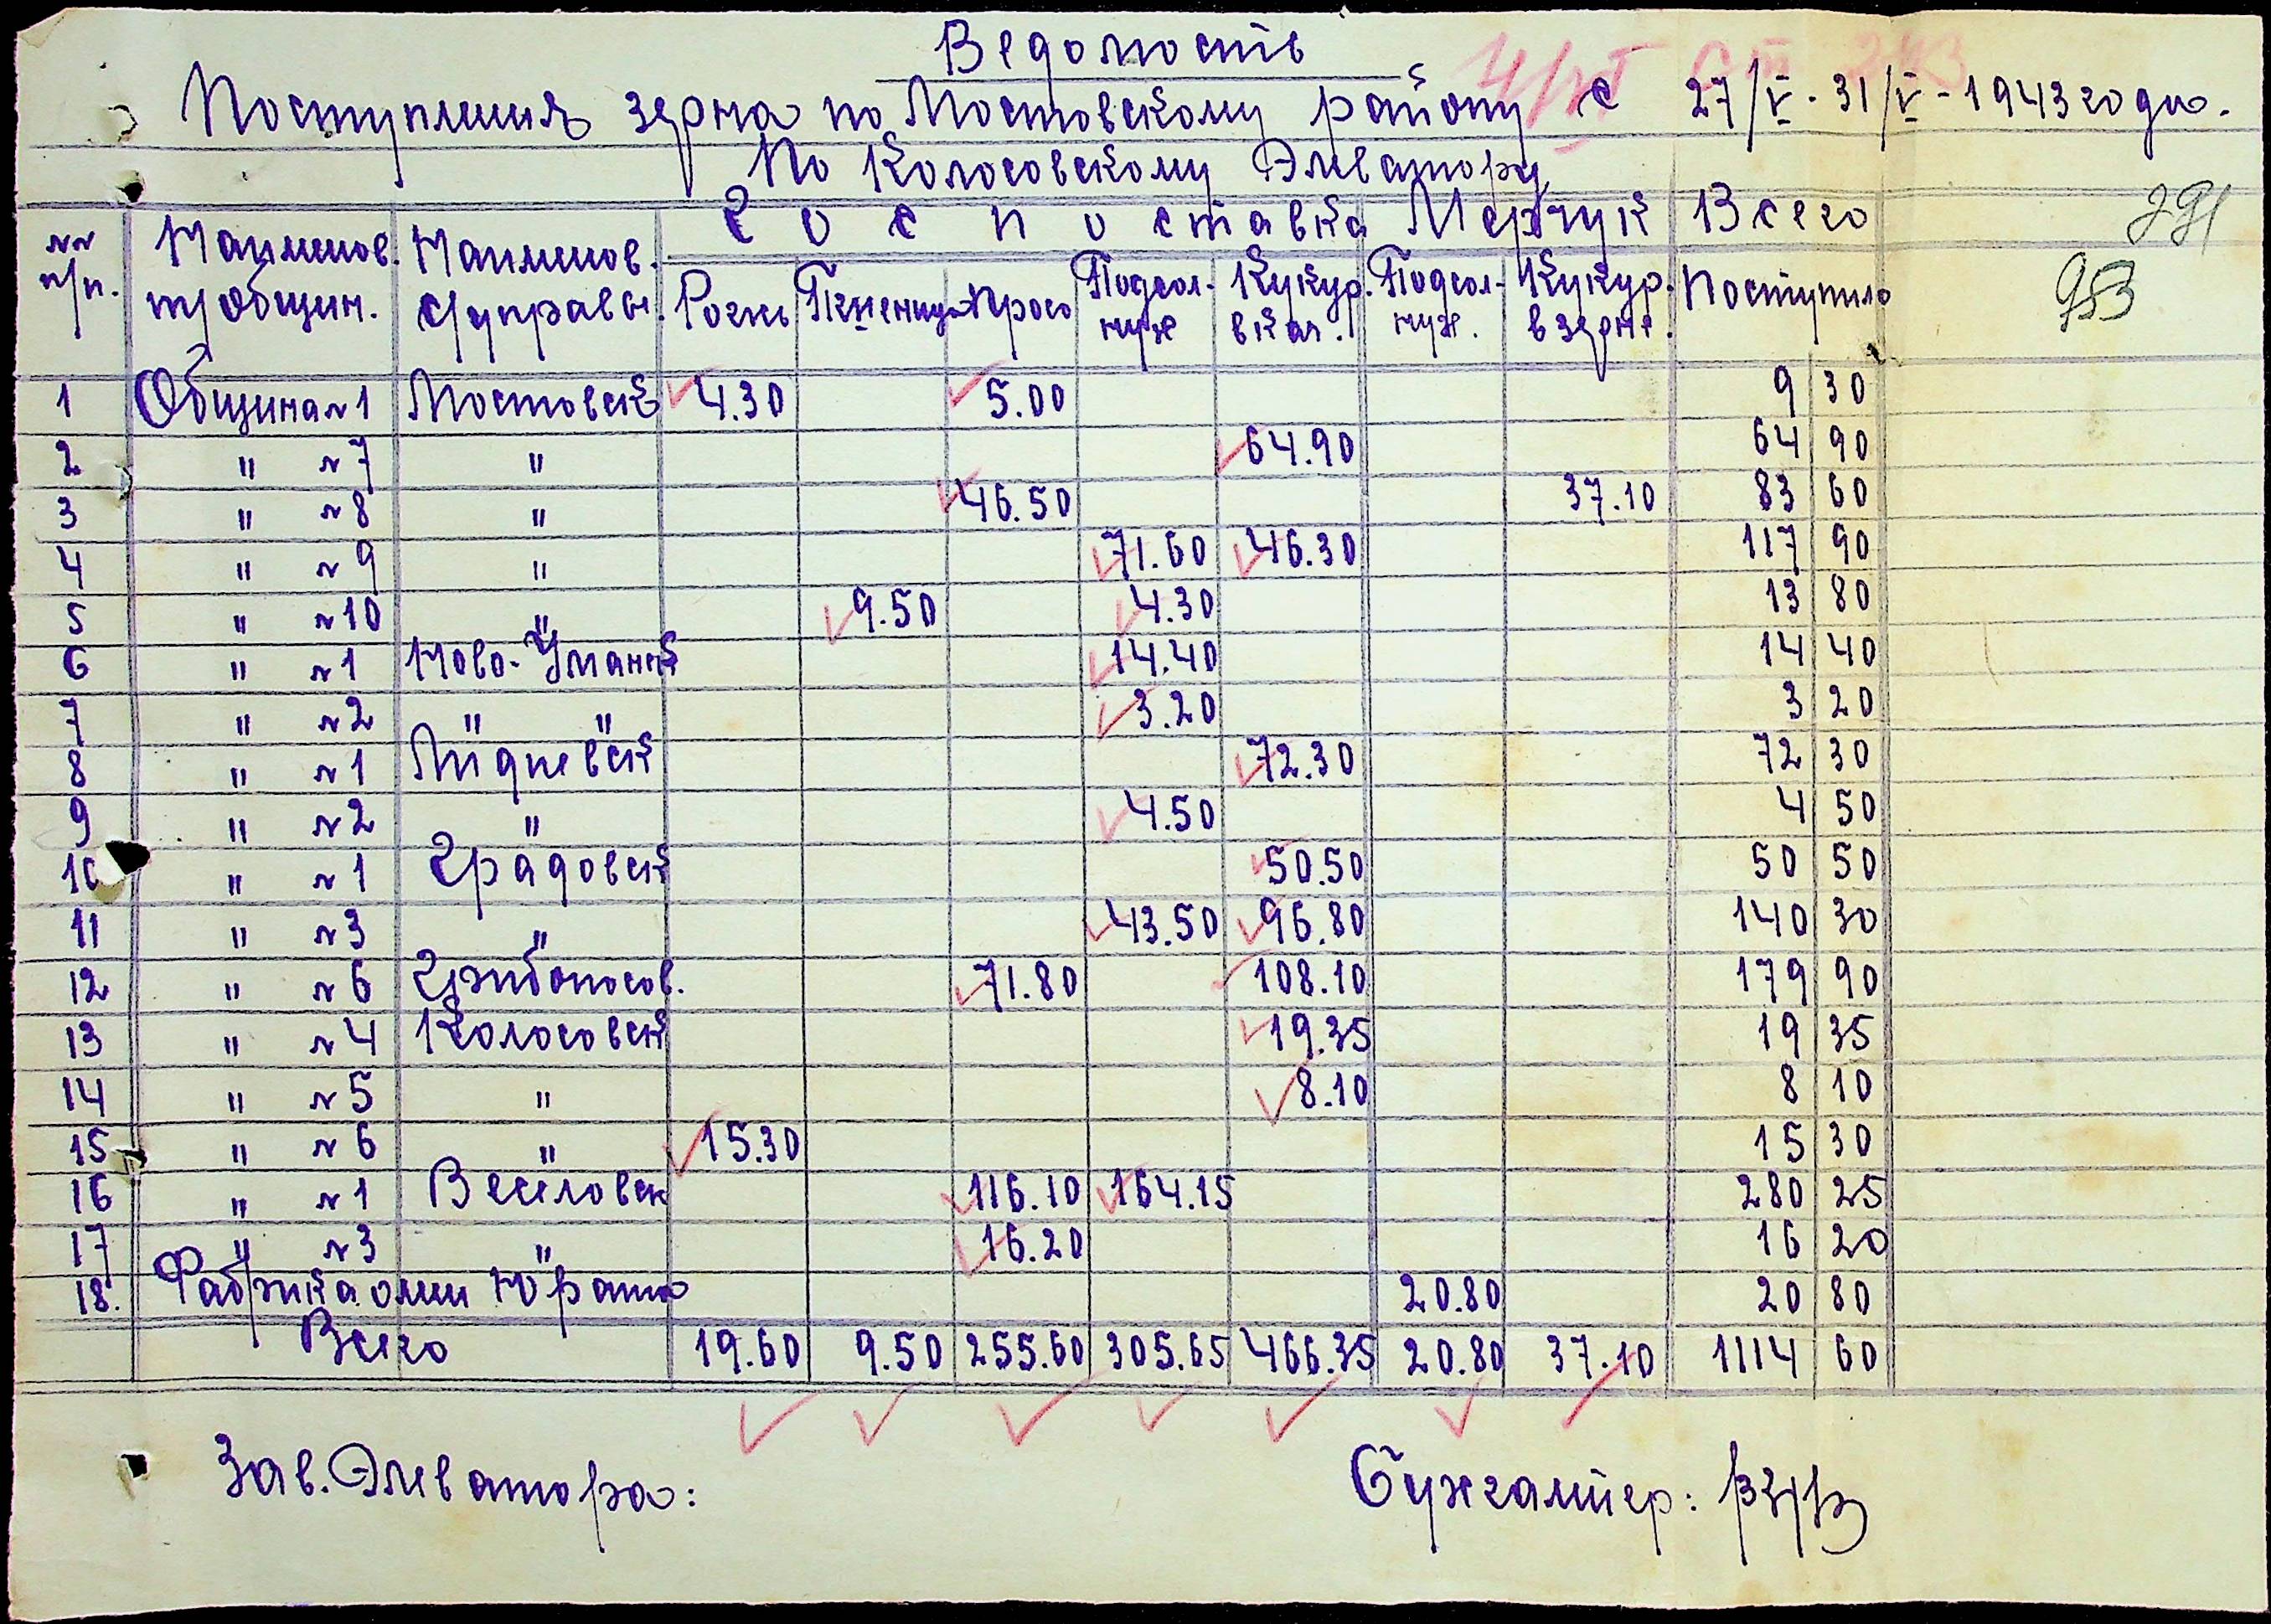 Ведомость
Поступления зерна по Мостовскому району с 27/V - 31/V - 1943 года.
По Колосовскому Элеватору
Госпоставка Мерчук Всего
№№ п/п. Наименов. т/общин. Наименов. с/управы. Рожь Пшеница Просо Подсолнух Кукур. в кач. Подсолнух. Кукур. в зерне. Поступило
291
953
1 Община №1 Мостовск 4.30 5.00 9 30
2 " №7 " 64.90 64 90
3 " №8 " 46.50 37.10 83 60
4 " №9 " 71.60 46.30 117 90
5 " №10 " 9.50 4.30 13 80
6 " №1 Ново-Уманск 14.40 14 40
7 " №2 " " 3.20 3 20
8 " №1 Лидиевск 72.30 72 30
9 " №2 " 4.50 4 50
10 " №1 Градовск 50.50 50 50
11 " №3 " 43.50 96.80 140 30
12 " №6 71.80 108.10 179 90
13 " №4 Колосовск 19.35 19 35
14 " №5 " 8.10 8 10
15 " №6 " 15.30 15 30
16 " №1 Веселовск 116.10 164.15 280 25
17 " №3 " 16.20 16 20
18. Фабрика 20.80 20 80
Всего 19.60 9.50 255.60 305.65 466.35 20.80 37.10 1114 60
Зав. Элеватора: Бухгалтер: